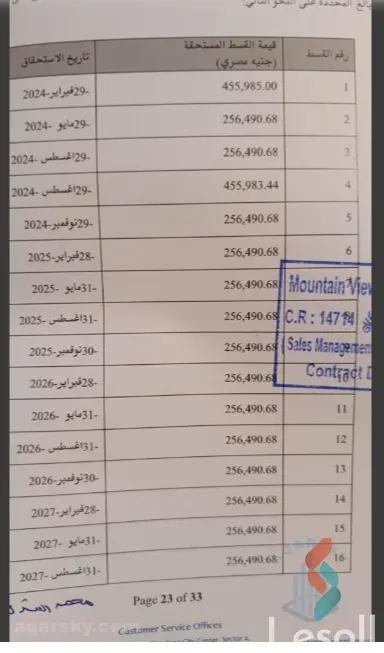 المحددة على النحو التالي:
رقم القسط قيمة القسط المستحقة (جنيه مصري) تاريخ الاستحقاق
1 455,985.00 29-فبراير-2024
2 256,490.68 29-مايو -2024
3 256,490.68 29-اغسطس -2024
4 455,983.44 29-اغسطس -2024
5 256,490.68 29-نوفمبر-2024
6 256,490.68 28-فبراير-2025
256,490.68 31-مايو -2025
256,490.68 31-اغسطس -2025
256,490.68 30-نوفمبر-2025
10 256,490.68 28-فبراير-2026
11 256,490.68 31-مايو -2026
12 256,490.68 31-اغسطس -2026
13 256,490.68 30-نوفمبر-2026
14 256,490.68 28-فبراير-2027
15 256,490.68 31-مايو -2027
16 256,490.68 31-اغسطس -2027
Mountain View
C.R : 14714
Sales Management
Contract D
Page 23 of 33
Customer Service Offices
aqarsky.com
Lesoll